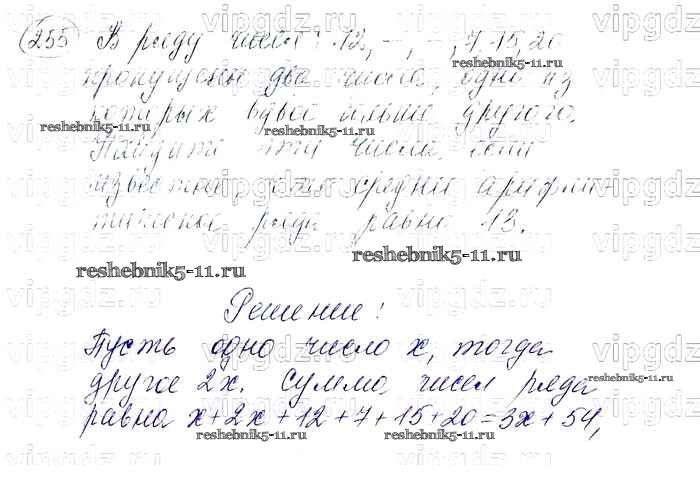 255 В ряду чисел: 12, —, —, 7, 15, 20
пропущено два числа, одно из
которых вдвое больше другого.
Найдите эти числа, если
известно, что среднее арифме-
тическое ряда равно 13.
Решение!
Пусть одно число х, тогда
другое 2х. Сумма чисел ряда
равна х+2х+12+7+15+20=3х+54,
vipgdz.ru
reshebnik5-11.ru